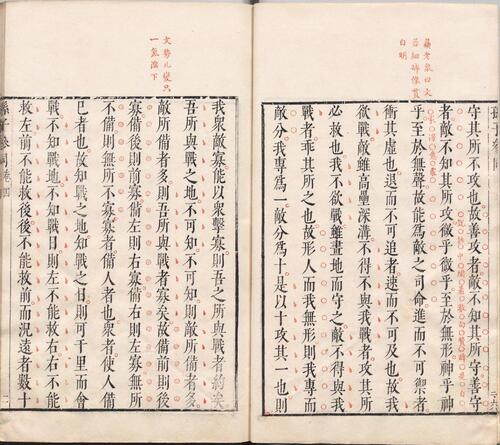 蘇老泉曰文
自明
守其所不攻也故善攻者敵不知其所守善守
者敵不知其所攻微乎微乎至於無形神乎神
乎至於無聲故能爲敵之司命進而不可禦者
衝其虛也退而不可追者速而不可及也故我
欲戰敵雖高壘深溝不得不與我戰者攻其所
必救也我不欲戰雖畫地而守之敵不得與我
戰者乖其所之也故形人而我無形則我專而
敵分我專爲一敵分爲十是以十攻其一也則
文勢此變只
一氣滚下
我衆敵寡能以衆擊寡則吾之所與戰者約矣
吾所與戰之地不可知不可知則敵所備者多
敵所備者多則吾所與戰者寡矣故備前則後
寡備後則前寡備左則右寡備右則左寡無所
不備則無所不寡寡者備人者也衆者使人備
己者也故知戰之地知戰之日則可千里而會
戰不知戰地不知戰日則左不能救右右不能
救左前不能救後後不能救前而況遠者數十
孫子參同卷四